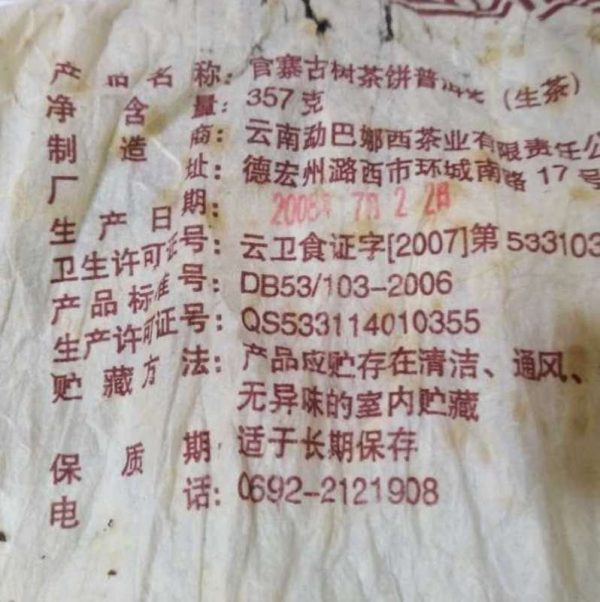 产品名称：官寨古树茶饼普洱茶（生茶）
净含量：357克
制造商：云南勐巴娜西茶业有限责任公
厂址：德宏州潞西市环城南路17号
生产日期：2008年7月22日
卫生许可证号：云卫食证字[2007]第533103
产品标准号：DB53/103-2006
生产许可证号：QS533114010355
贮藏方法：产品应贮存在清洁、通风、
无异味的室内贮藏
保质期：适于长期保存
电话：0692-2121908